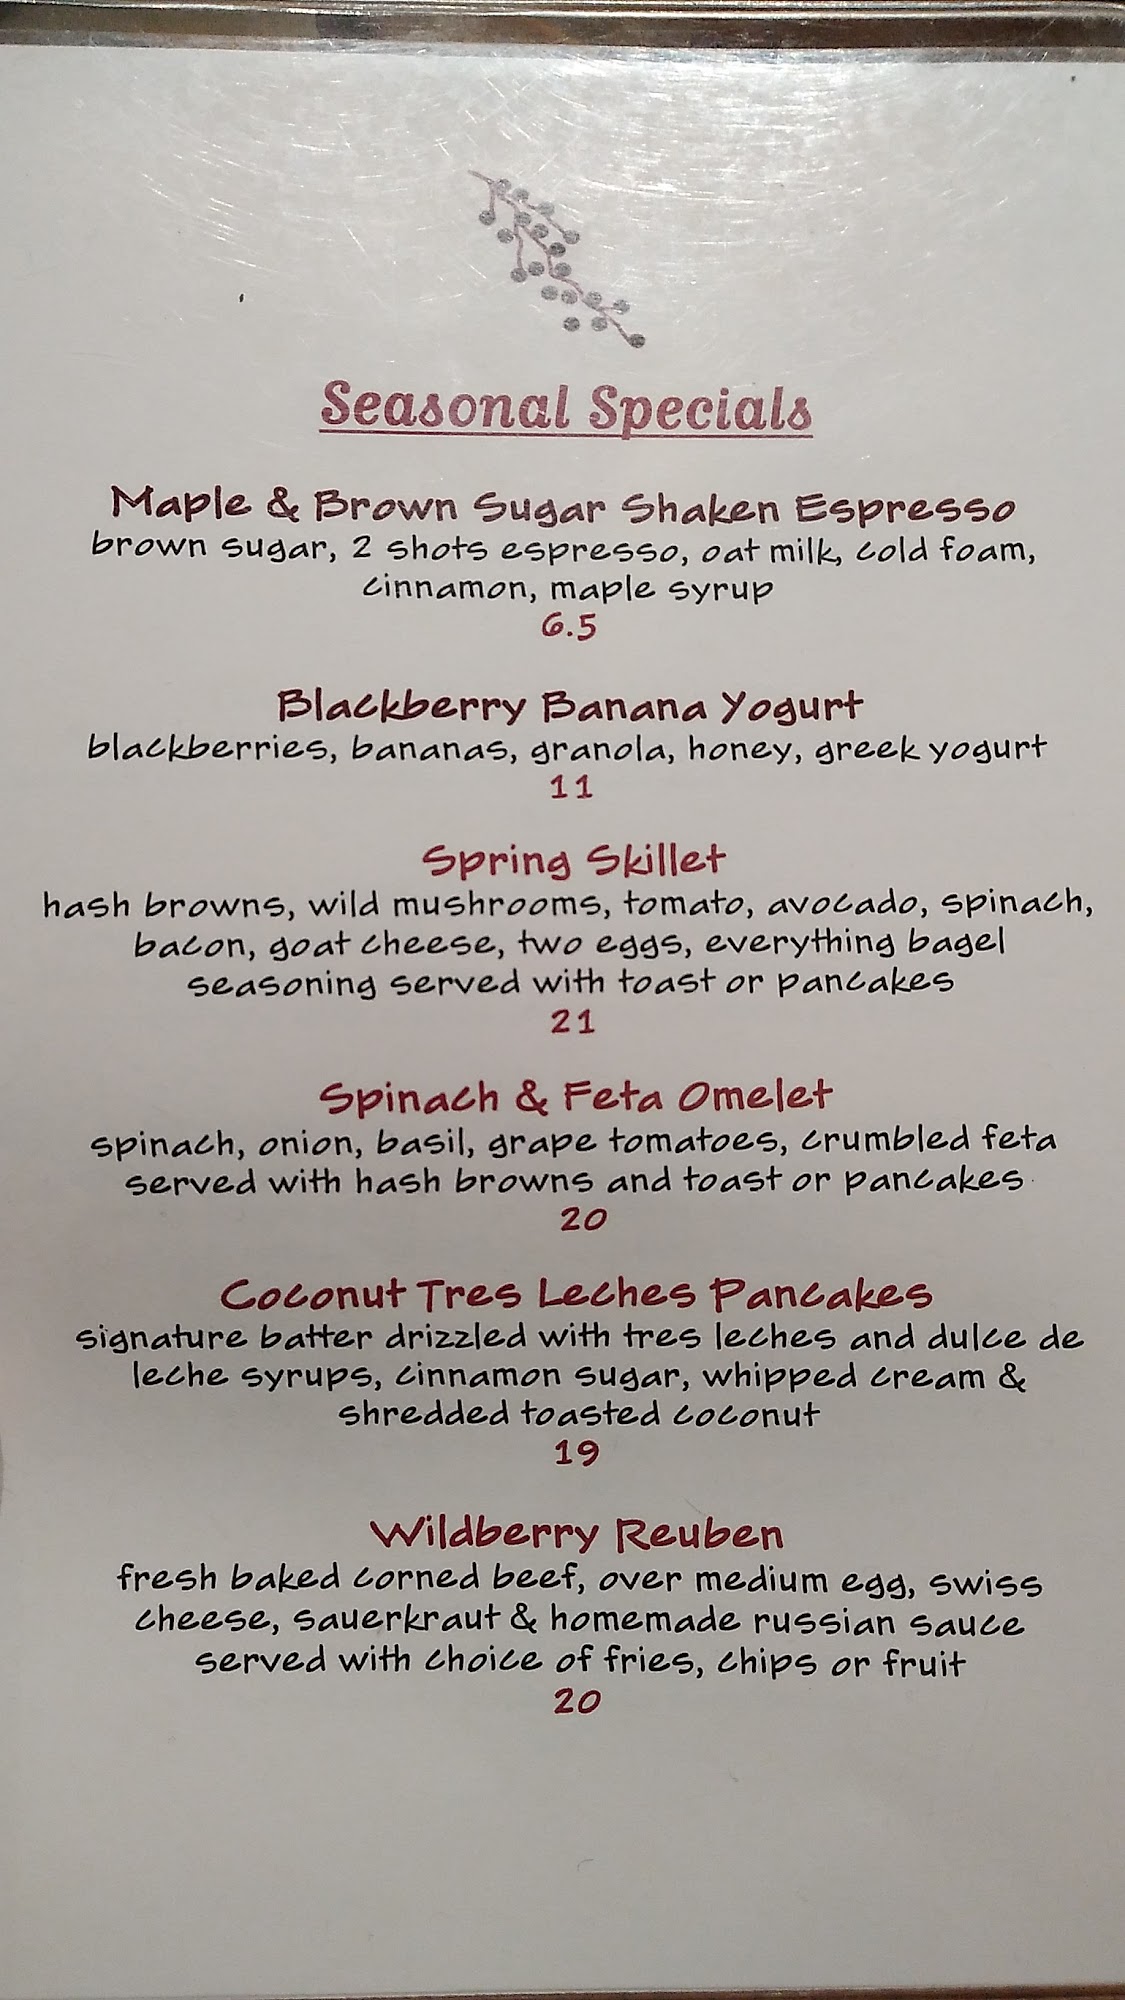 Seasonal Specials
Maple & Brown Sugar Shaken Espresso
brown sugar, 2 shots espresso, oat milk, cold foam,
cinnamon, maple syrup
6.5
Blackberry Banana Yogurt
blackberries, bananas, granola, honey, greek yogurt
11
Spring Skillet
hash browns, wild mushrooms, tomato, avocado, spinach,
bacon, goat cheese, two eggs, everything bagel
seasoning served with toast or pancakes
21
Spinach & Feta Omelet
spinach, onion, basil, grape tomatoes, crumbled feta
served with hash browns and toast or pancakes
20
Coconut Tres Leches Pancakes
signature batter drizzled with tres leches and dulce de
leche syrups, cinnamon sugar, whipped cream &
shredded toasted coconut
19
Wildberry Reuben
fresh baked corned beef, over medium egg, swiss
cheese, sauerkraut & homemade russian sauce
served with choice of fries, chips or fruit
20